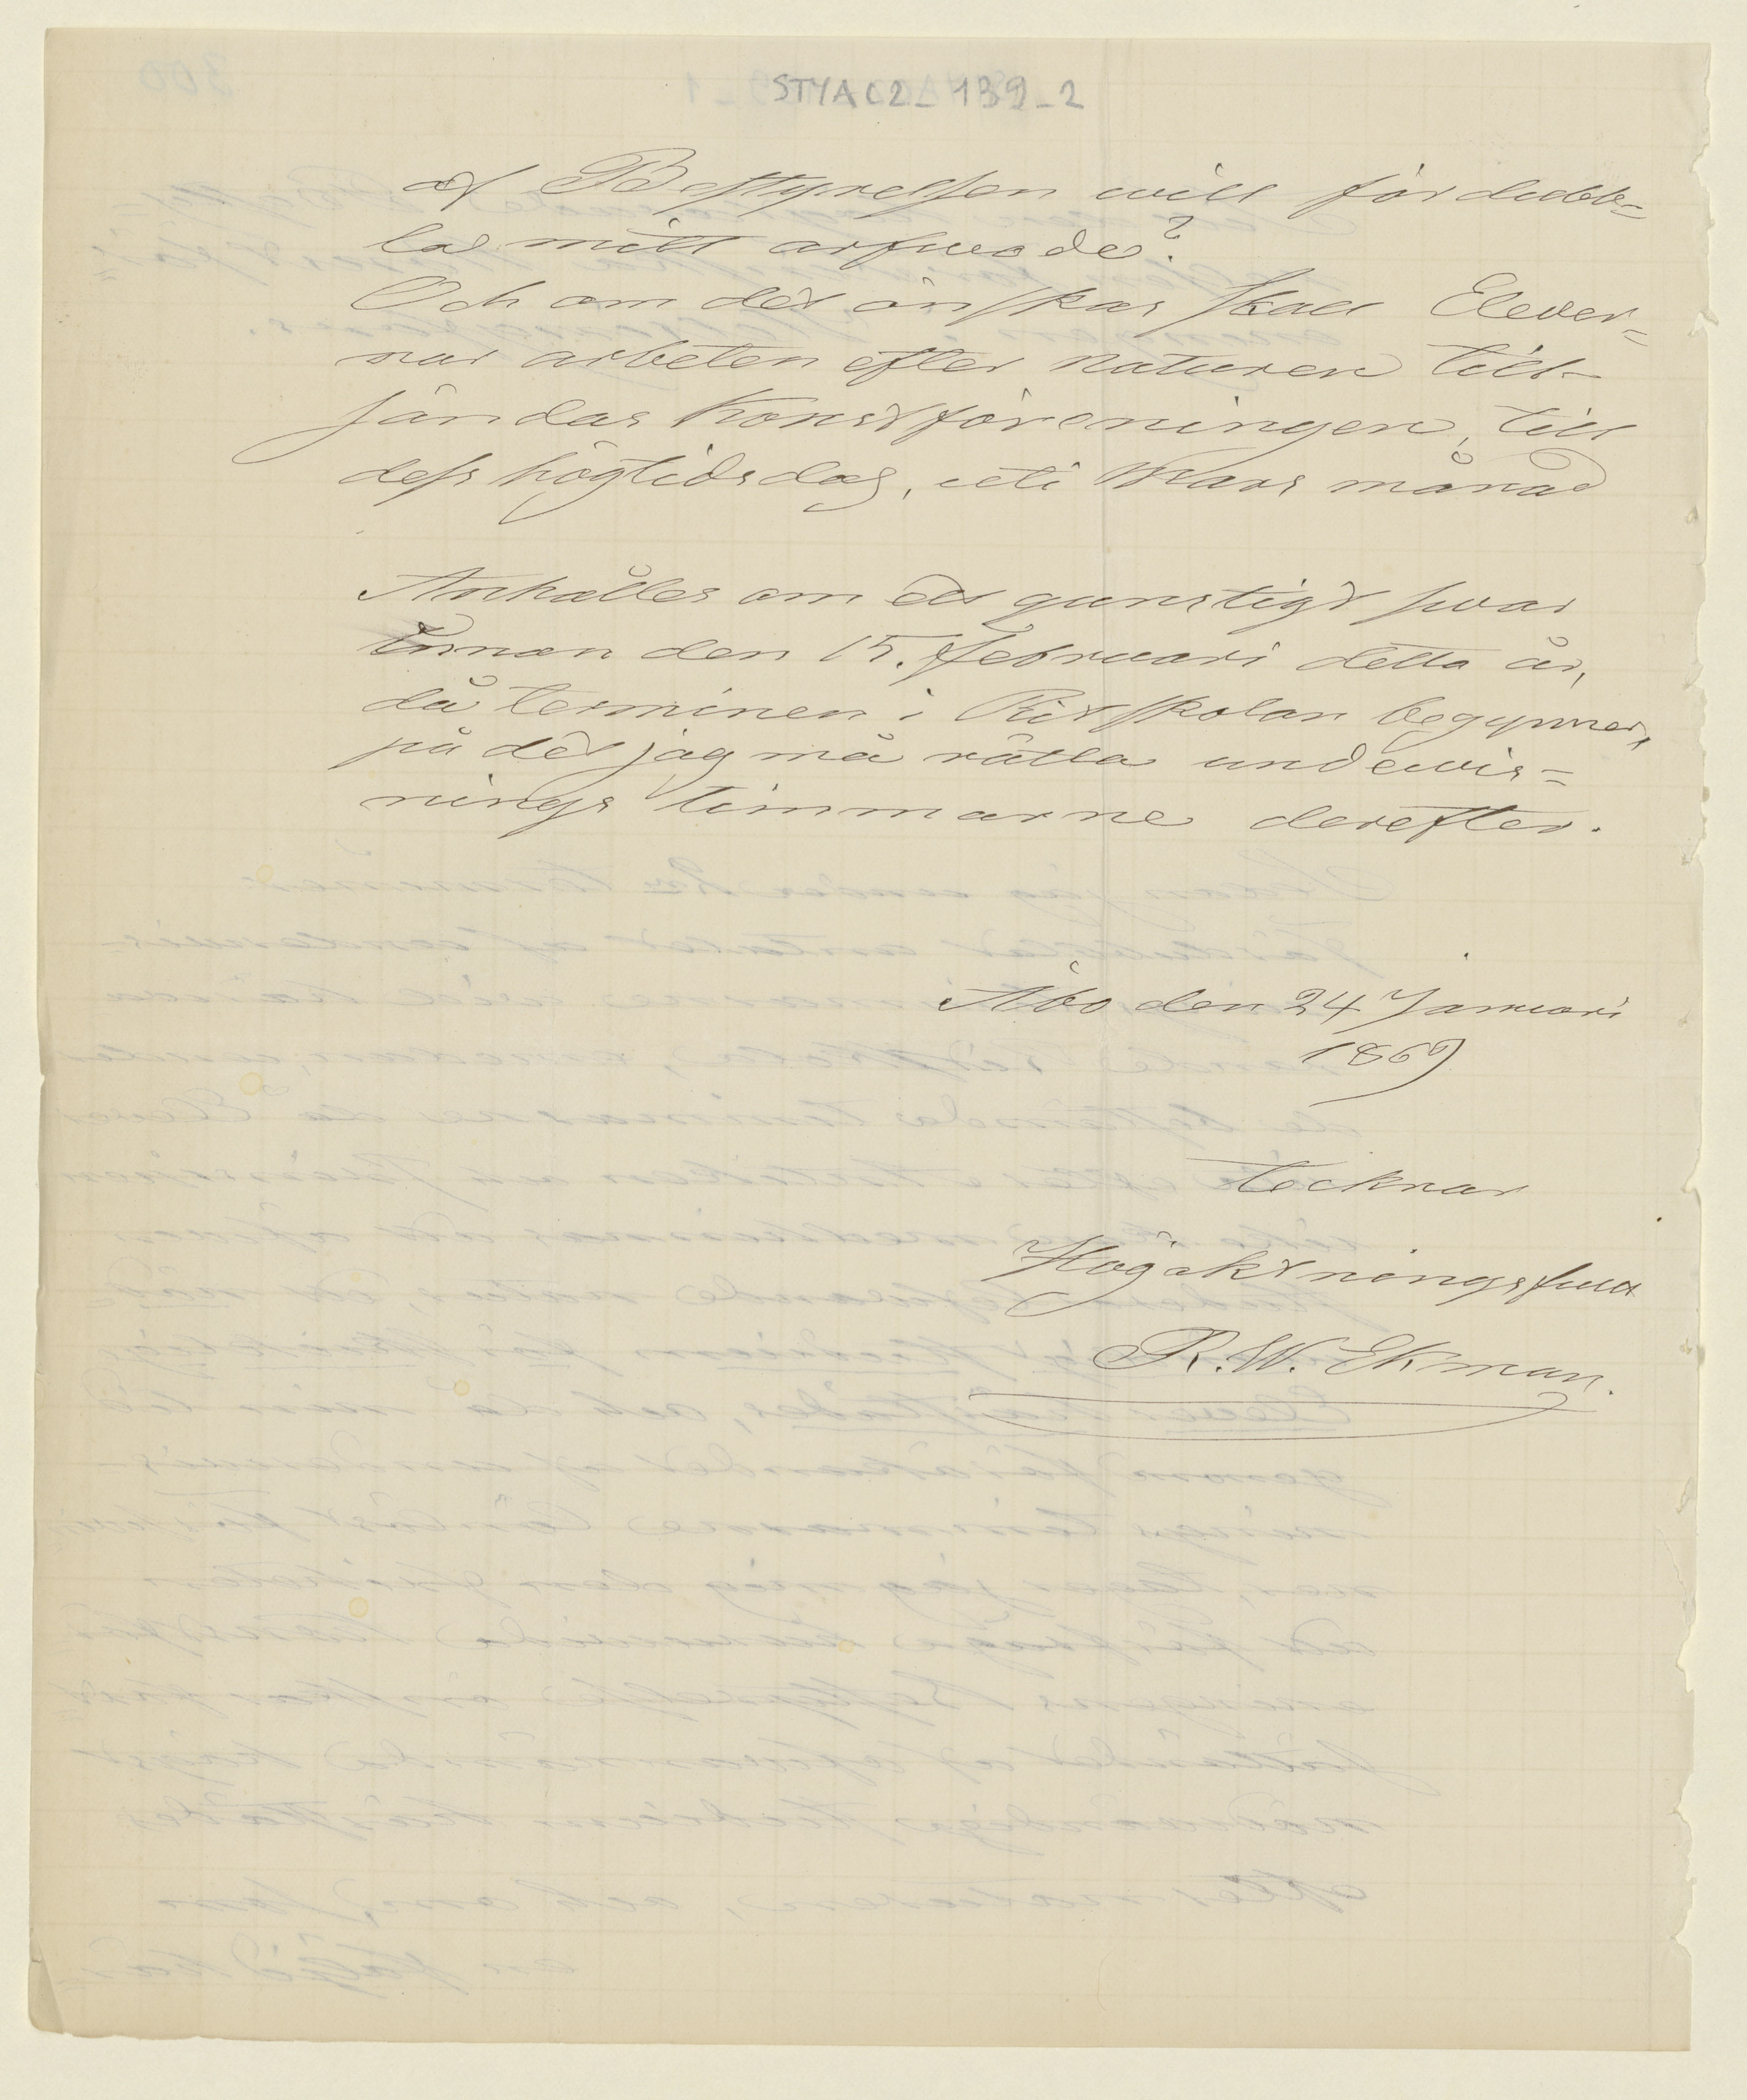 STYA C2_139_2
af Bestyrelsen will fördubb=
las mitt arfwode?
Och om det önskas skall Elever=
nas arbeten efter naturen till=
sändas Konstföreningen, till
dess högtidsdag, uti Mars månad
Anhålles om ett gunstigt swar
innan den 15. Februari detta år,
då terminen i Ritskolan begynner,
på det jag må rätta undewis=
nings timmarne derefter.
Åbo den 24 Januari
1869
Tecknar
Högaktningsfull
R. W. Ekman.